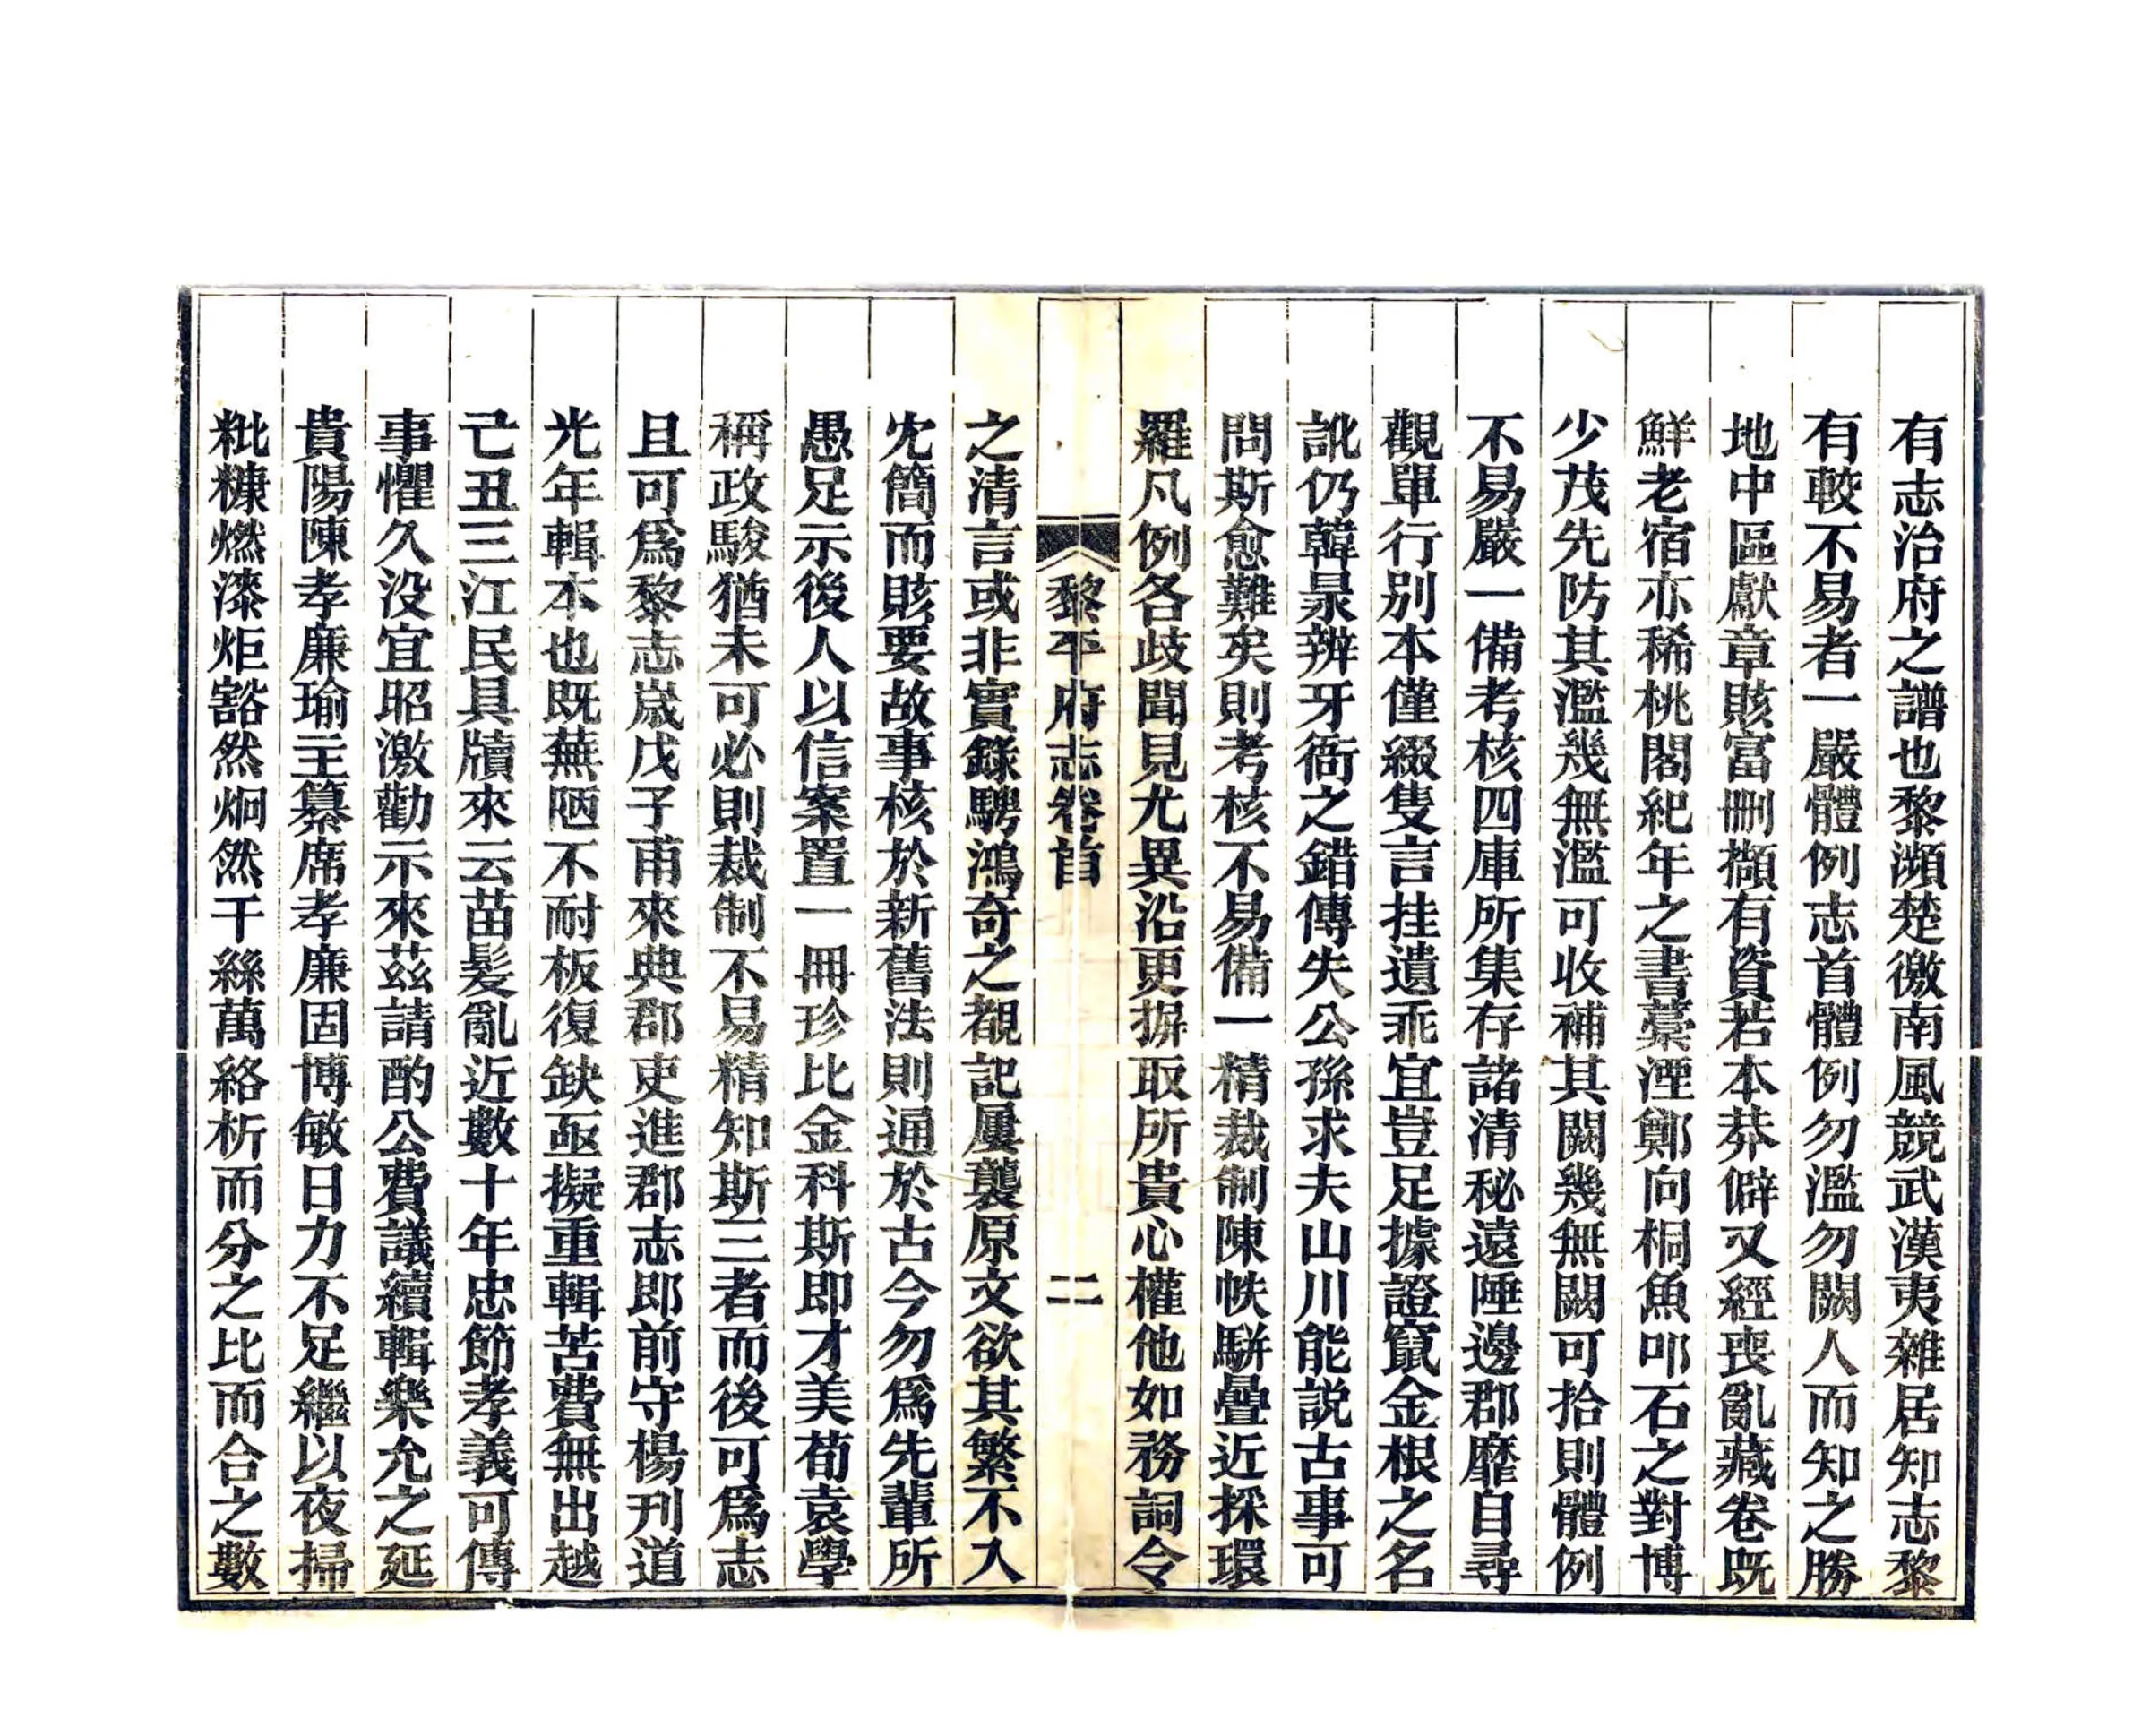 有志治府之譜也黎瀕楚徼南風競武漢夷雜居知志黎
有較不易者一嚴體例志首體例勿濫勿闕人而知之勝
地中區獻章賅富刪擷有資若本莽僻又經喪亂藏卷既
鮮老宿亦稀桃閣紀年之書藁湮鄭向桐魚叩石之對博
少茂先防其濫幾無濫可收補其闕幾無闕可拾則體例
不易嚴一備考核四庫所集存諸清秘遠陲邊郡靡自尋
觀單行別本僅綴隻言挂遺乖宜豈足據證竄金根之名
訛仍韓杲辨牙衙之錯傳失公孫求夫山川能説古事可
問斯愈難矣則考核不易備一精裁制陳帙駢疊近採環
羅凡例各歧聞見尤異沿更摒取所貴心權他如務詞令
黎平府志卷首 二
之清言或非實錄騁鴻奇之覩記屢襲原文欲其繁不入
冘簡而賅要故事核於新舊法則通於古今勿爲先輩所
愚足示後人以信案置一冊珍比金科斯即才美荀袁學
稱政駿猶未可必則裁制不易精知斯三者而後可爲志
且可爲黎志嵗戊子甫來典郡吏進郡志即前守楊刋道
光年輯本也既蕪陋不耐板復缺亟擬重輯苦費無出越
己丑三江民具牘來云苗髪亂近數十年忠節孝義可傳
事懼久没宜昭激勸示來茲請酌公費議續輯樂允之延
貴陽陳孝廉瑜主纂席孝廉固博敏日力不足繼以夜掃
粃糠燃漆炬豁然炯然千絲萬絡析而分之比而合之數